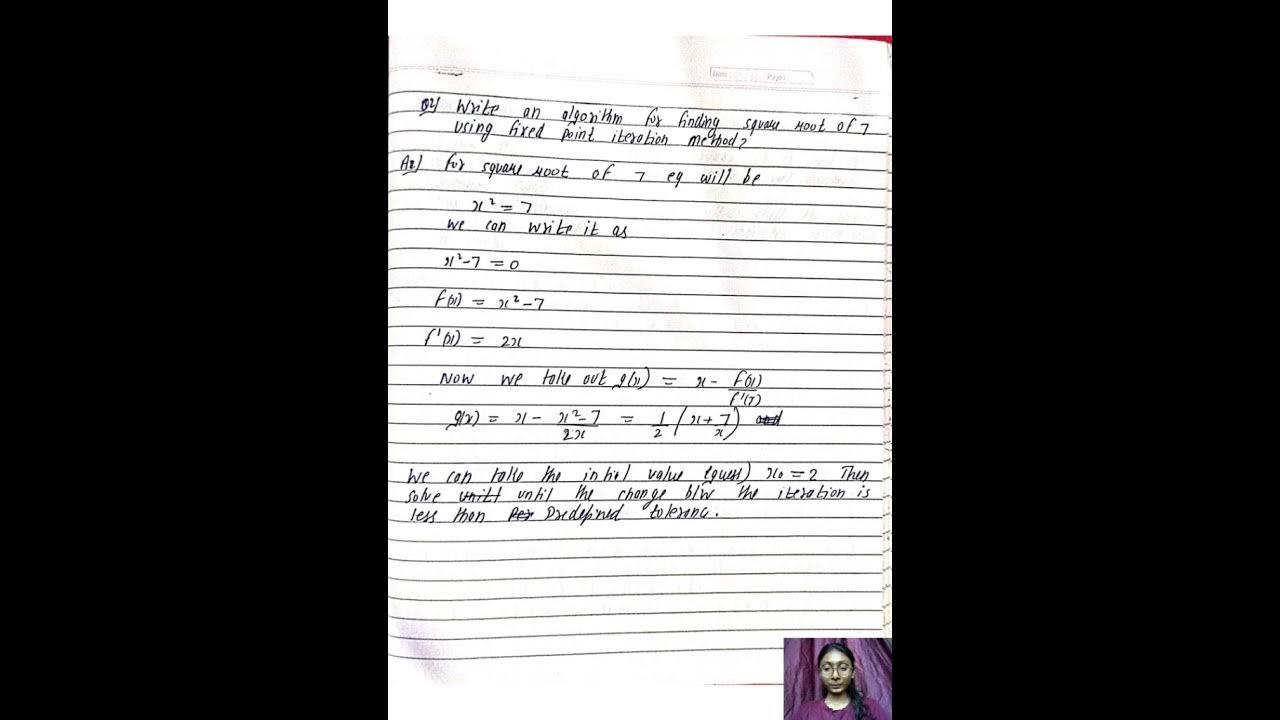 Date: Page:
Q2) Write an algorithm for finding square root of 7
using fixed point iteration method?
A2) For square root of 7 eq will be
x² = 7
we can write it as
x²-7 = 0
f(x) = x²-7
f'(x) = 2x
Now we take out g(x) = x - f(x)/f'(x)
g(x) = x - x²-7/2x = 1/2 (x+7/x)
We can take the initial value (guess) x₀ = 2 Then
solve until the change b/w the iteration is
less than predefined tolerance.